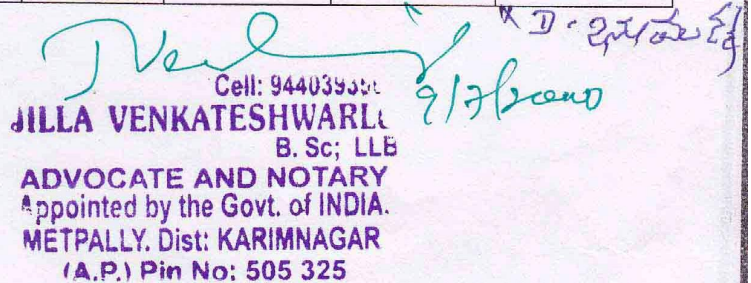 x D.
Cell: 944039
JILLA VENKATESHWARL
B. Sc; LLB
9/7/2010
ADVOCATE AND NOTARY
Appointed by the Govt. of INDIA.
METPALLY. Dist: KARIMNAGAR
(A.P.) Pin No: 505 325